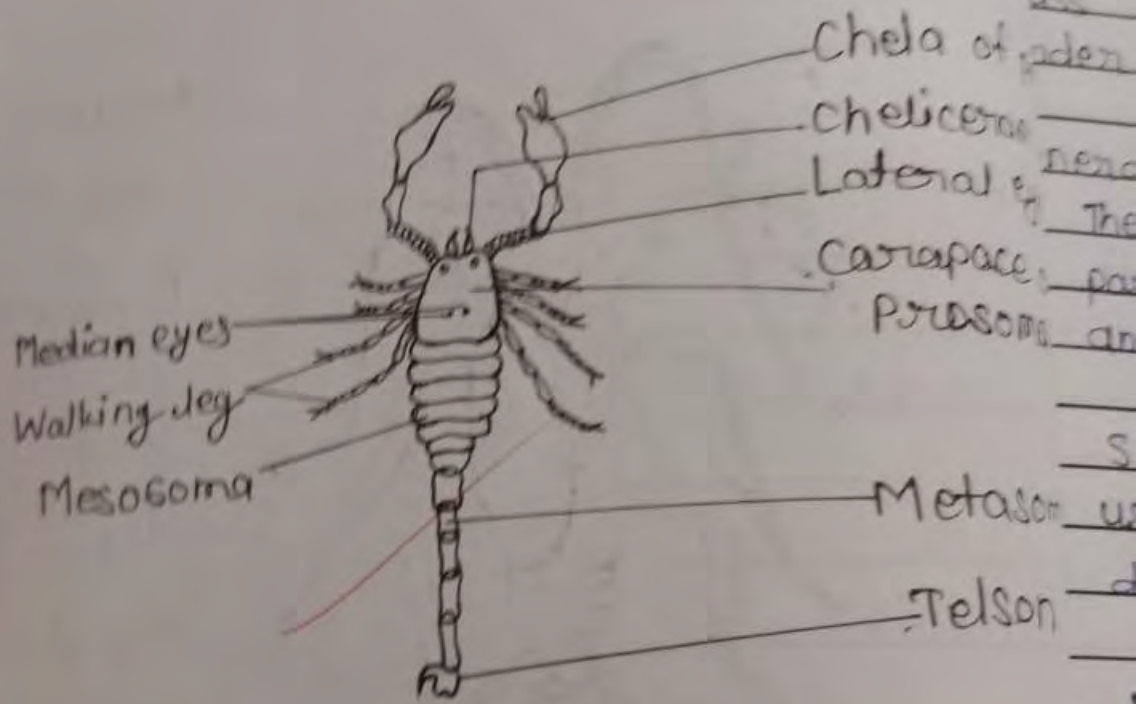 Chela of
Chelicera
Lateral
Carapace
Prosom
Median eyes
Walking leg
Mesosoma
Metasom
Telson
The
an
S